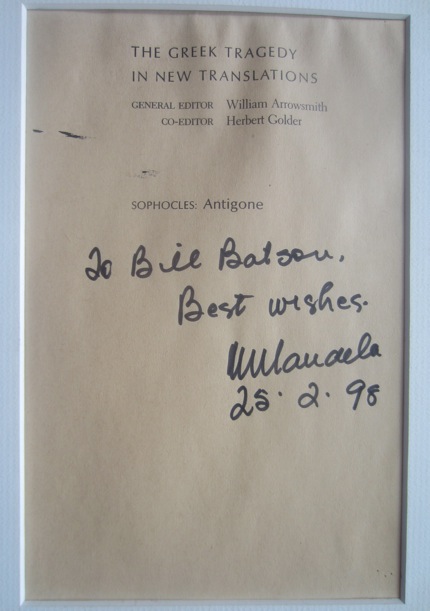 THE GREEK TRAGEDY
IN NEW TRANSLATIONS
GENERAL EDITOR William Arrowsmith
CO-EDITOR Herbert Golder
SOPHOCLES: Antigone
To Bill Batson,
Best wishes.
NMandela
25. 2. 98